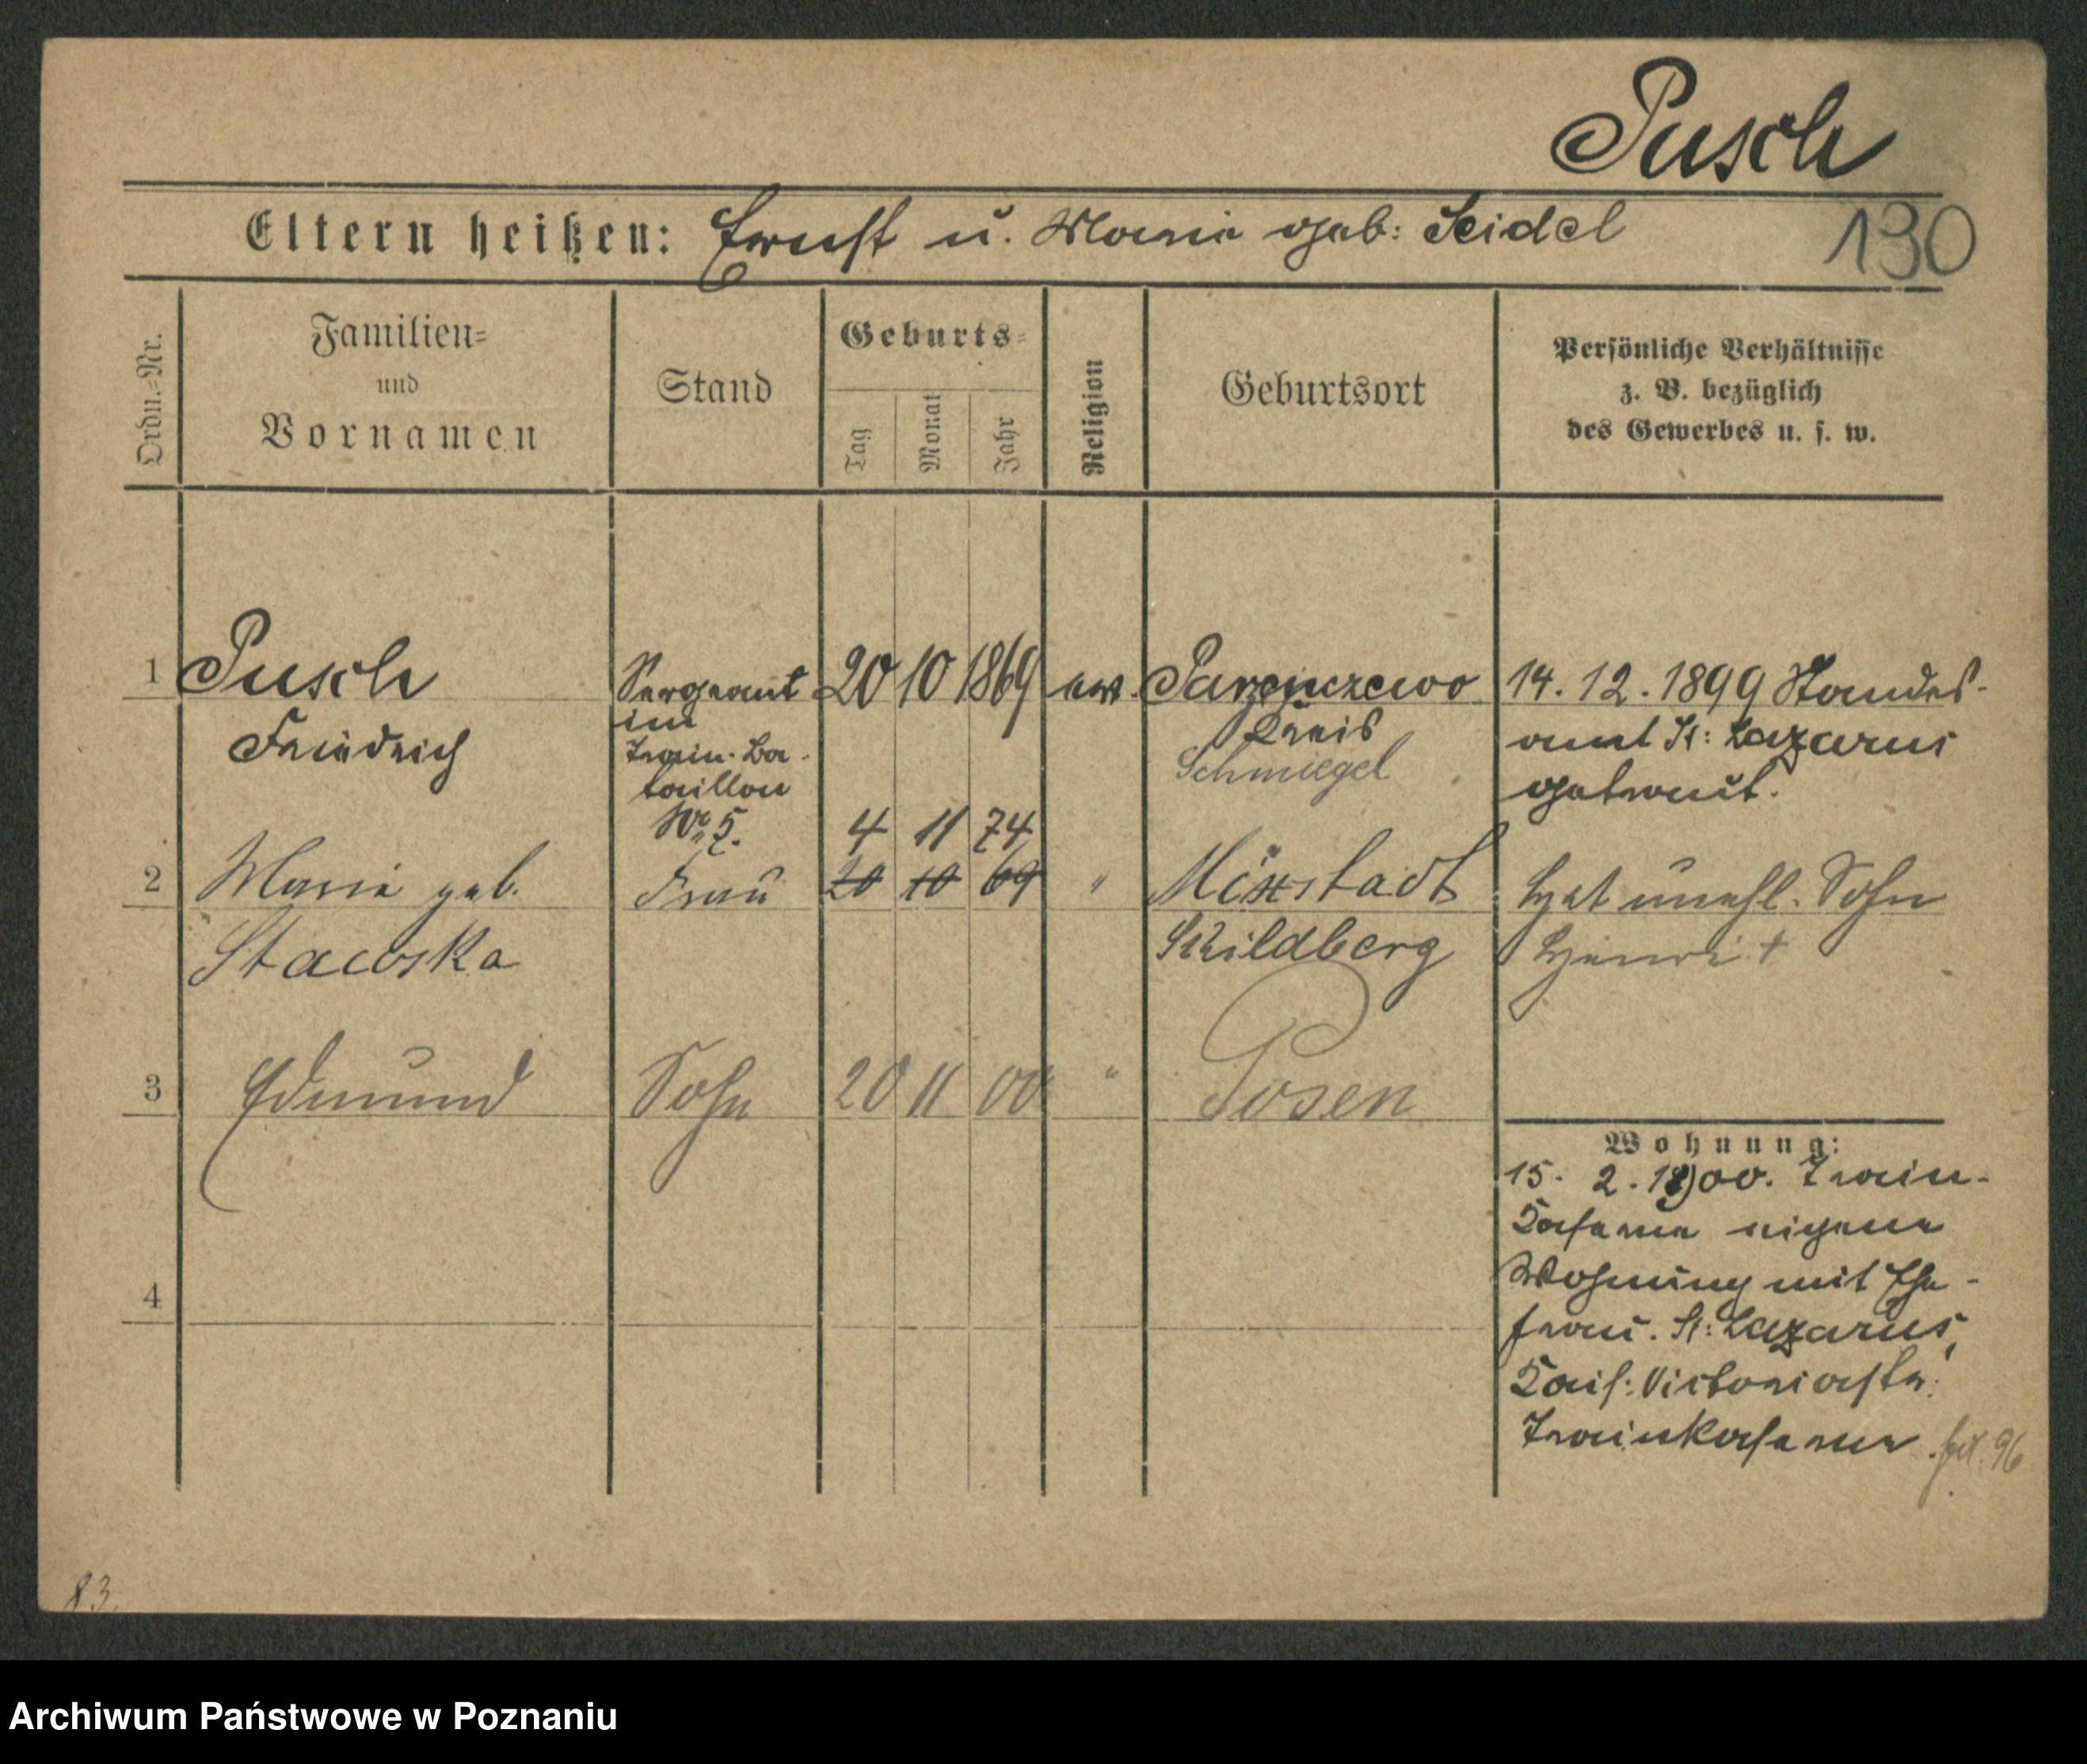 Pusch
Eltern heißen: Ernst u. Marie geb: Seidel
130
Ordn.-Nr.
Familien-
und
Vornamen
Stand
Geburts-
Tag
Monat
Jahr
Religion
Geburtsort
Persönliche Verhältnisse
z. B. bezüglich
des Gewerbes u. s. w.
1 Pusch Sergeant 20 10 1869 ev. Parzenczewo 14. 12. 1899 Standes-
Friedrich im Kreis amt St: Lazarus
Train-Ba- Schmiegel getraut.
taillon
No 5. 4 11 74
2 Marie geb. Frau 20 10 69 " Mixstadt Hat unehl. Sohn
Stacoska Schildberg Henri +
3 Edmund Sohn 20 11 00 " Posen
Wohnung:
15. 2. 1900. Train-
Kaserne eigene
Wohnung mit Ehe-
frau. St: Lazarus,
4
Kais: Victoriastr:
Trainkaserne 96
83.
Archiwum Państwowe w Poznaniu